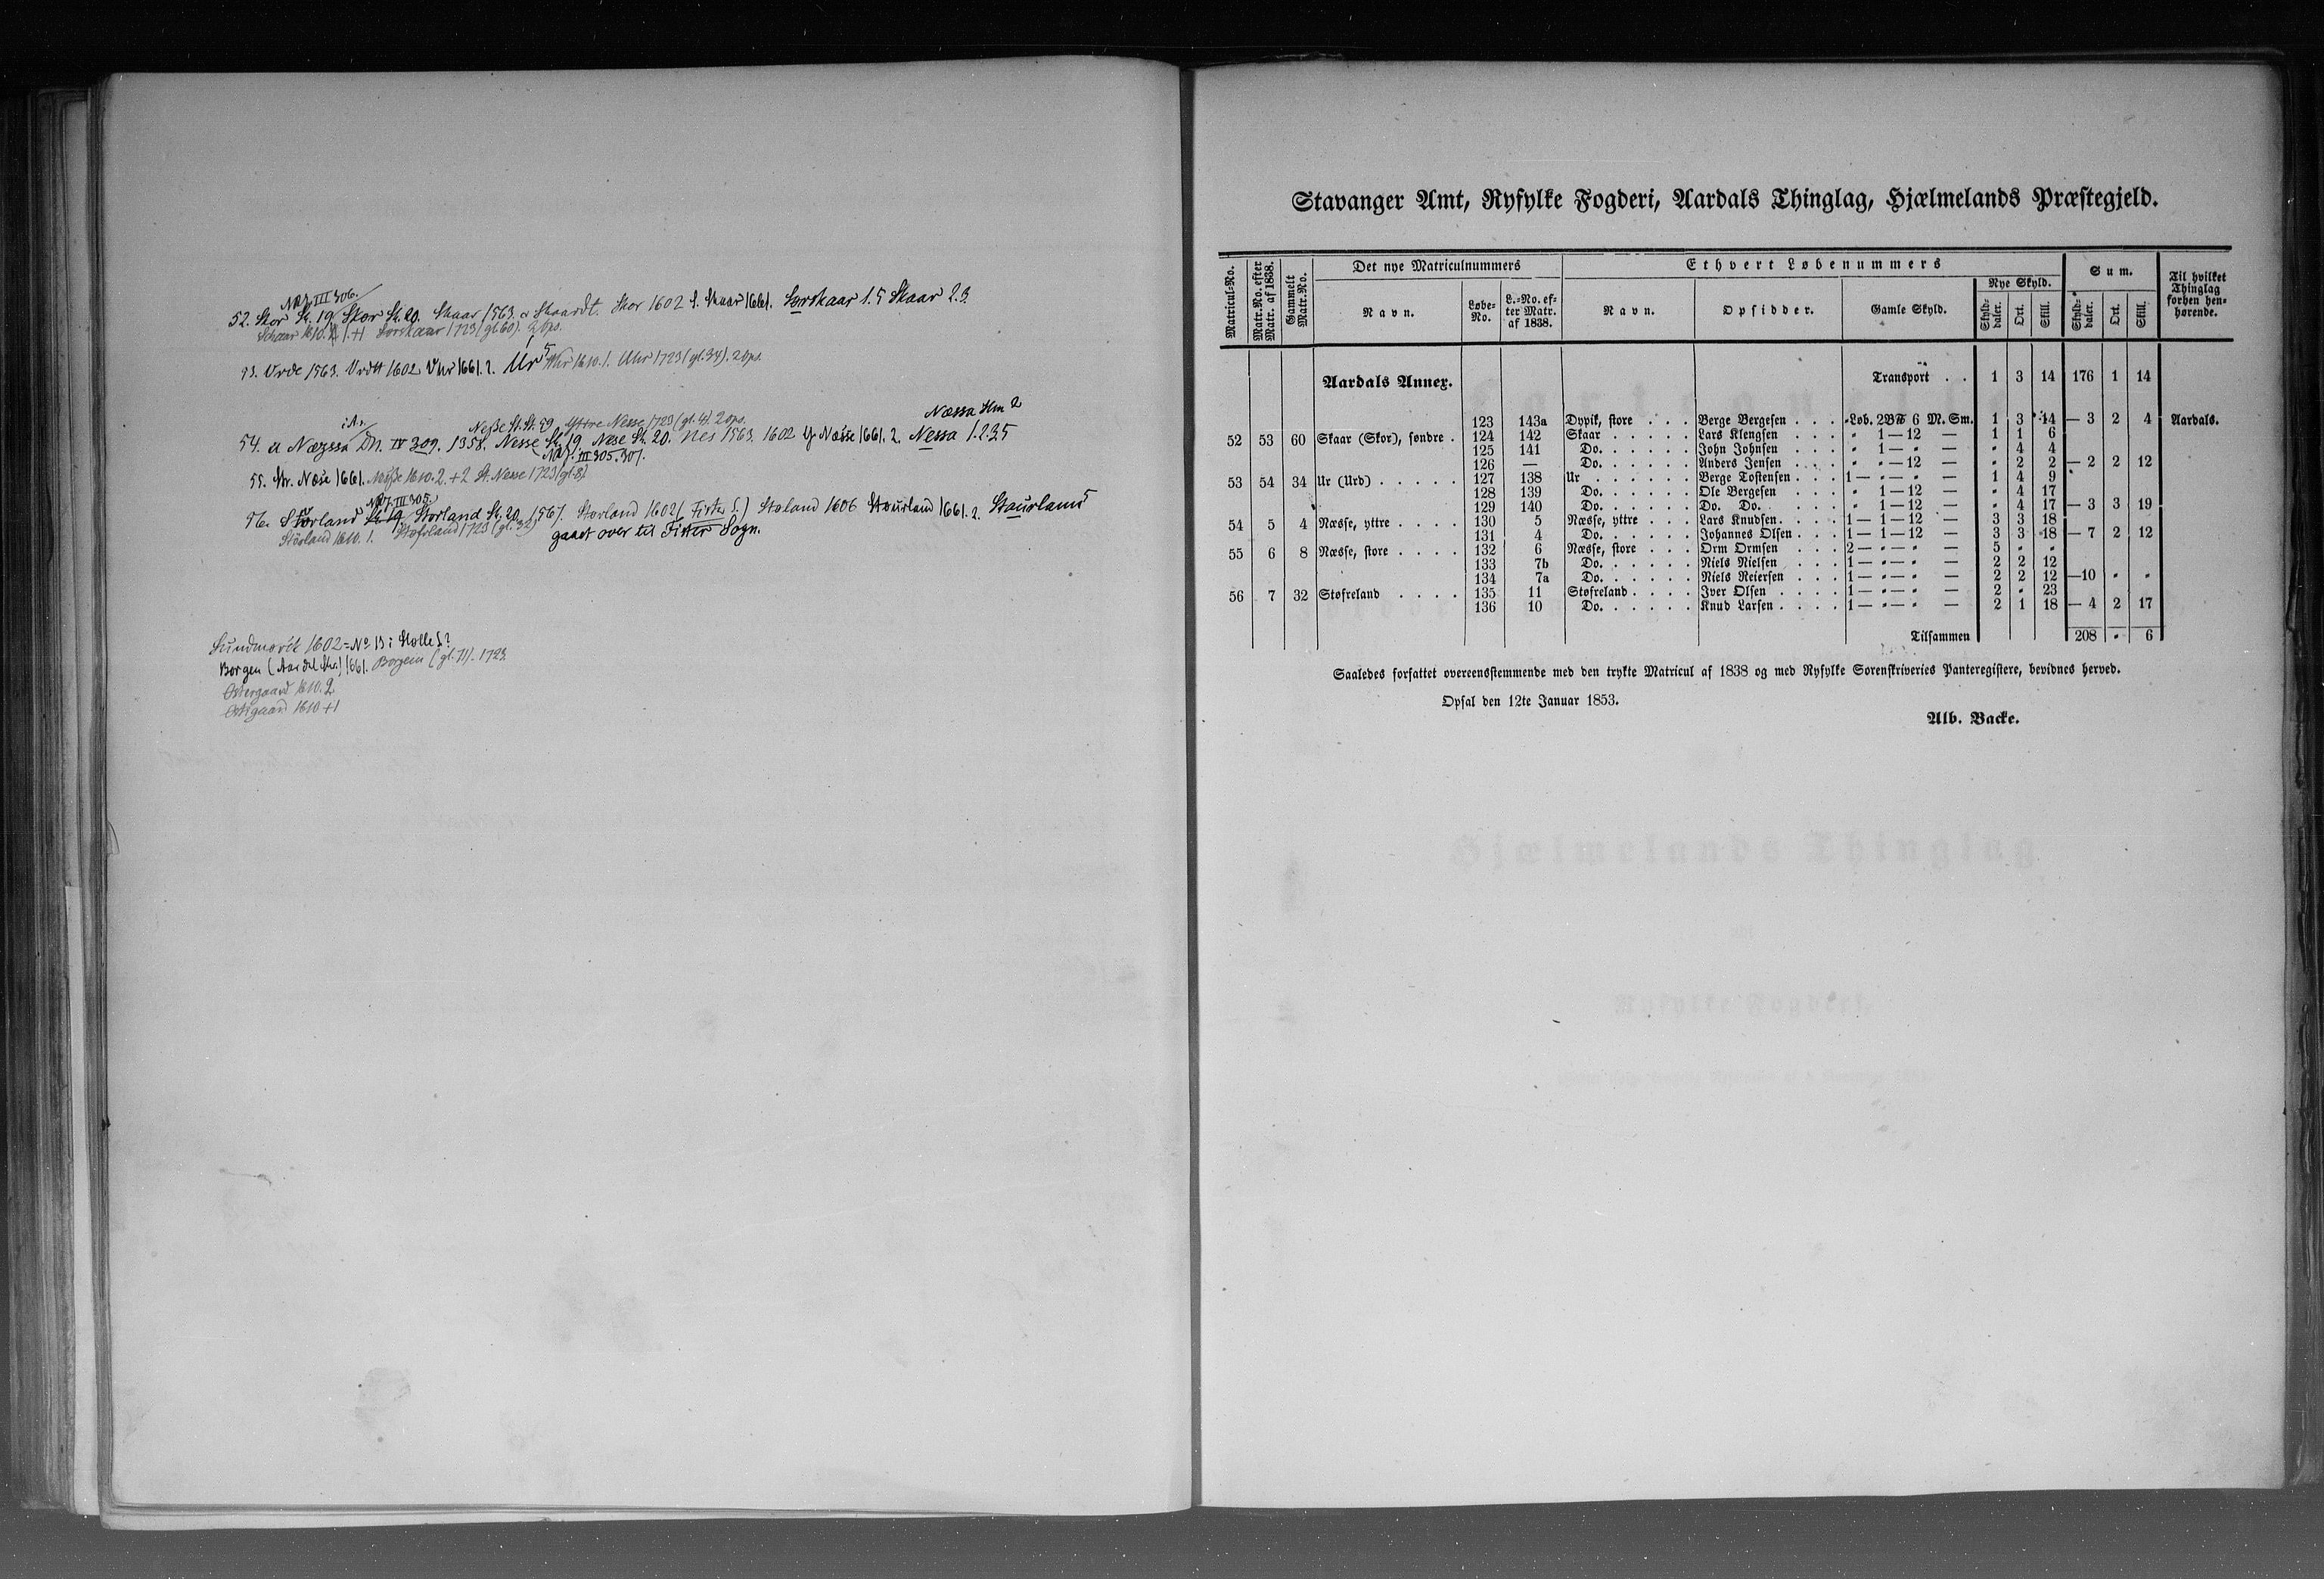 NRJ. III 306.
52. Skor St. 19 Skor St. 20. Skaar 1563. a Skaardt. Skor 1602 S. Skaar 1661. Sørskaar 1.5 Skaar 2.3.
Schaar 1610. 1.+1 Sørskaar 1723 (gl. 60). 2 Ops.
53. Vrde 1563. Vrdtt 1602 Vhr 1661. 2. Ur 5 Whr 1610. 1. Uhr 1723 (gl. 34). 2 Ops.
Næssa Hm 2
Nesse St. St. 59. Yttre Nesse 1723 (gl. 4). 2 Ops.
54. a Nægssa DN. IV 309. 1358. Nesse St. 19 Nese St. 20. Nes 1563. 1602 Y. Næsse 1661. 2. Nessa 1.2.3.5
NRJ. III 305. 307.
55. St. Næse 1661. Neße 1610. 2. + 2 St. Nesse 1723 (gl. 8)
NRJ. III 305.
56. Storland St. 19 Storland St. 20 1567. Storland 1602 (Fister S.) Støland 1606 Stourland 1661. 2. Staurland 5
Störland 1610. 1. Støfsland 1723 (gl. 32) gaaet over til Fister Sogn.
1602 = No 13 i Halle S.?
Borgen (Aardal Skr.) 1661. Borgem (gl. 71). 1723.
Østergaard 1610. 2
Østgaard 1610 + 1
Stavanger Amt, Ryfylke Fogderi, Aardals Thinglag, Hjælmelands Præstegjeld.
Matricul-No. Matr.No. efter Matr. af 1838. Gammelt Matr.No. Det nye Matriculnummers Ethvert Løbenummers Sum. Til hvilket Thinglag forhen henhørende.
Navn. Løbe-No. L.-No. efter Matr. af 1838. Navn. Opsidder. Gamle Skyld. Nye Skyld. Skylddaler. Ort. Skill. Skylddaler. Ort. Skill.
Aardals Annex. Transport . . 1 3 14 176 1 14
123 143a Dypik, store . . . Berge Bergesen . . . " Løb. 2 BH 6 M. Sm. 1 3 14 — 3 2 4 Aardals.
52 53 60 Skaar (Skor), søndre . 124 142 Skaar . . . . . Lars Klengsen . . . " 1 — 12 — 1 1 6
125 141 Do. . . . . . John Johnsen . . . " 1 — " — " 4 4
126 — Do. . . . . . Anders Jensen . . . " " — 12 — " 2 2 — 2 2 12
53 54 34 Ur (Urd) . . . . . 127 138 Ur . . . . . . Berge Tostensen . . . 1 — " — " — 1 4 9
128 139 Do. . . . . . Ole Bergesen . . . " 1 — 12 — " 4 17
129 140 Do. . . . . . Do. Do. . . . " 1 — 12 — " 4 17 — 3 3 19
54 5 4 Næsse, yttre . . . . 130 5 Næsse, yttre . . . Lars Knudsen . . . 1 — 1 — 12 — 3 3 18
131 4 Do. . . . . . Johannes Olsen . . . 1 — 1 — 12 — 3 3 18 — 7 2 12
55 6 8 Næsse, store . . . . 132 6 Næsse, store . . . Orm Ormsen . . . 2 — " — " — 5 " "
133 7b Do. . . . . . Niels Nielsen . . . 1 — " — " — 2 2 12
134 7a Do. . . . . . Niels Reiersen . . . 1 — " — " — 2 2 12 — 10 " "
56 7 32 Støfreland . . . . 135 11 Støfreland . . . . Iver Olsen . . . . 1 — " — " — 2 " 23
136 10 Do. . . . . . Knud Larsen . . . . 1 — " — " — 2 1 18 — 4 2 17
Tilsammen 208 " 6
Saaledes forfattet overeensstemmende med den trykte Matricul af 1838 og med Ryfylke Sorenskriveries Panteregistere, bevidnes herved.
Opsal den 12te Januar 1853.
Alb. Backe.